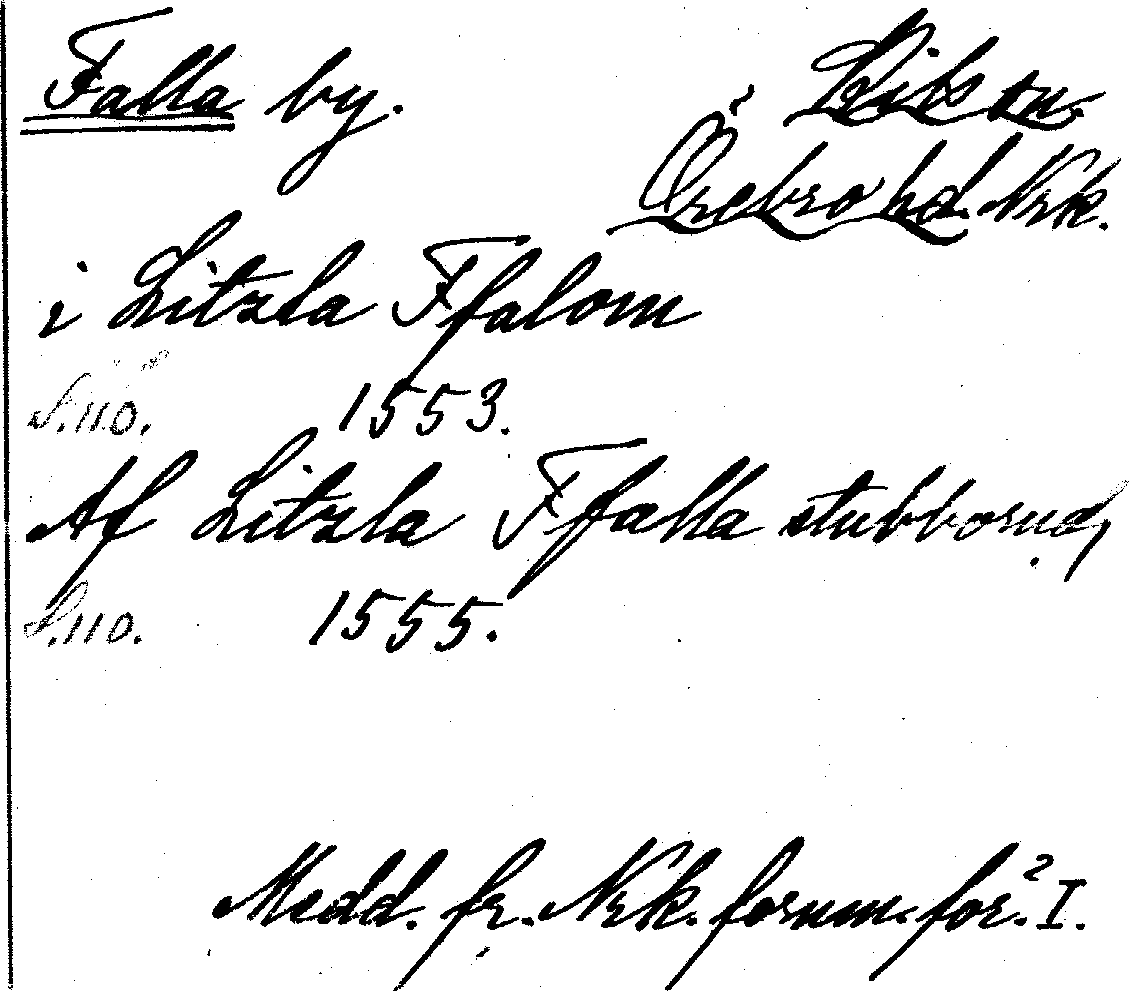 Falla by. Kils sn.
Örebro hd. Nrk.
i Litzla Ffalom
S. 110. 1553.
Af Litzla Ffalla stubborud,
S. 110. 1555.
Medd. fr. Nrk. fornm. för. I.